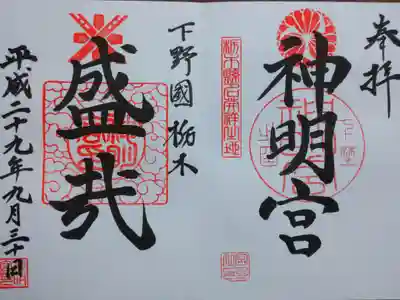 奉拝
神明宮
栃木縣名発祥之地
下野國栃木
盛哉
平成二十九年九月三十日